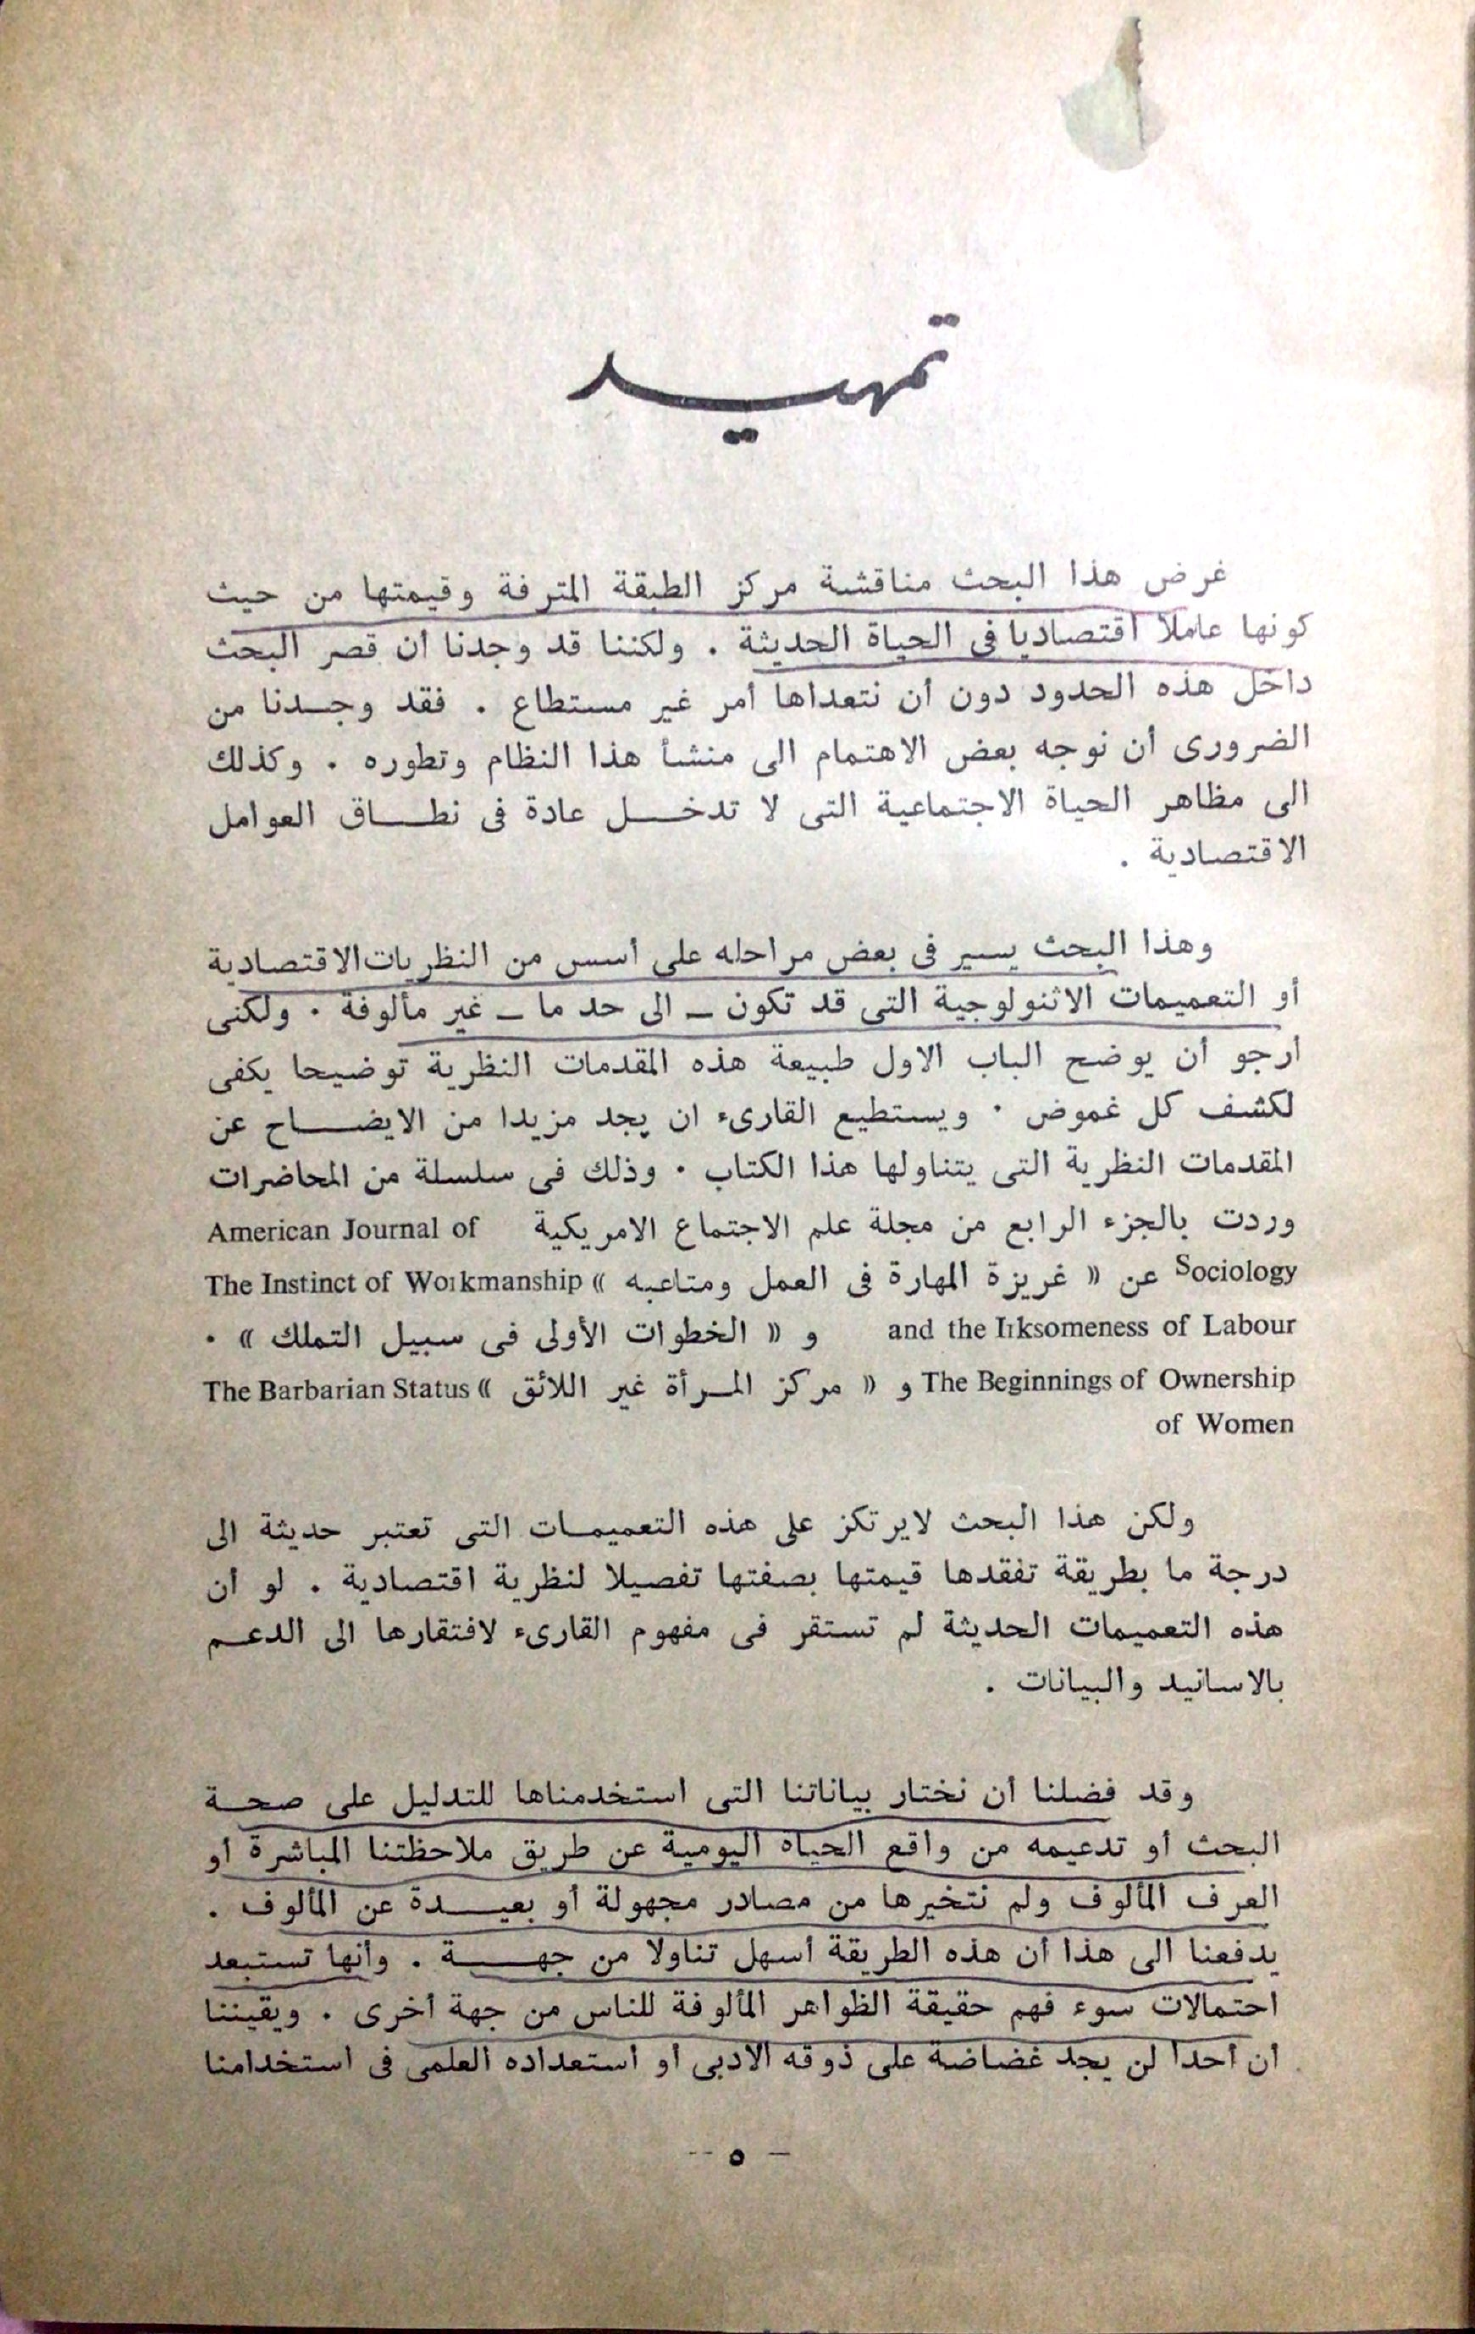 تمهيد
غرض هذا البحث مناقشة مركز الطبقة المترفة وقيمتها من حيث
كونها عاملا اقتصاديا فى الحياة الحديثة . ولكننا قد وجدنا أن قصر البحث
داخل هذه الحدود دون أن نتعداها أمر غير مستطاع . فقد وجدنا من
الضرورى أن نوجه بعض الاهتمام الى منشأ هذا النظام وتطوره . وكذلك
الى مظاهر الحياة الاجتماعية التى لا تدخل عادة فى نطاق العوامل
الاقتصادية .
وهذا البحث يسير فى بعض مراحله على أسس من النظريات الاقتصادية
أو التعميمات الاثنولوجية التى قد تكون – الى حد ما – غير مألوفة . ولكنى
أرجو أن يوضح الباب الاول طبيعة هذه المقدمات النظرية توضيحا يكفى
لكشف كل غموض . ويستطيع القارىء ان يجد مزيدا من الايضاح عن
المقدمات النظرية التى يتناولها هذا الكتاب . وذلك فى سلسلة من المحاضرات
وردت بالجزء الرابع من مجلة علم الاجتماع الامريكية American Journal of
Sociology عن « غريزة المهارة فى العمل ومتاعبه » The Instinct of Workmanship
and the Irksomeness of Labour و « الخطوات الأولى فى سبيل التملك » .
The Beginnings of Ownership و « مركز المرأة غير اللائق » The Barbarian Status
of Women
ولكن هذا البحث لايرتكز على هذه التعميمات التى تعتبر حديثة الى
درجة ما بطريقة تفقدها قيمتها بصفتها تفصيلا لنظرية اقتصادية . لو أن
هذه التعميمات الحديثة لم تستقر فى مفهوم القارىء لافتقارها الى الدعم
بالاسانيد والبيانات .
وقد فضلنا أن نختار بياناتنا التى استخدمناها للتدليل على صحة
البحث أو تدعيمه من واقع الحياة اليومية عن طريق ملاحظتنا المباشرة أو
العرف المألوف ولم نتخيرها من مصادر مجهولة أو بعيدة عن المألوف .
يدفعنا الى هذا أن هذه الطريقة أسهل تناولا من جهة . وأنها تستبعد
احتمالات سوء فهم حقيقة الظواهر المألوفة للناس من جهة أخرى . ويقيننا
أن أحدا لن يجد غضاضة على ذوقه الادبى أو استعداده العلمى فى استخدامنا
– ٥ –